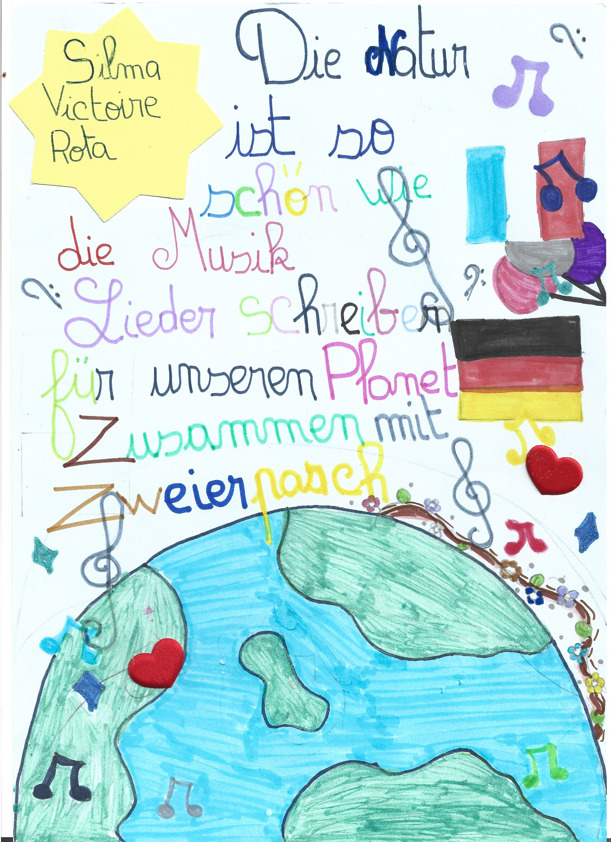 Silma
Victoire
Rota
Die Natur
ist so
schön wie
die Musik
Lieder schreiben
für unseren Planet
Zusammen mit
Zweierpasch